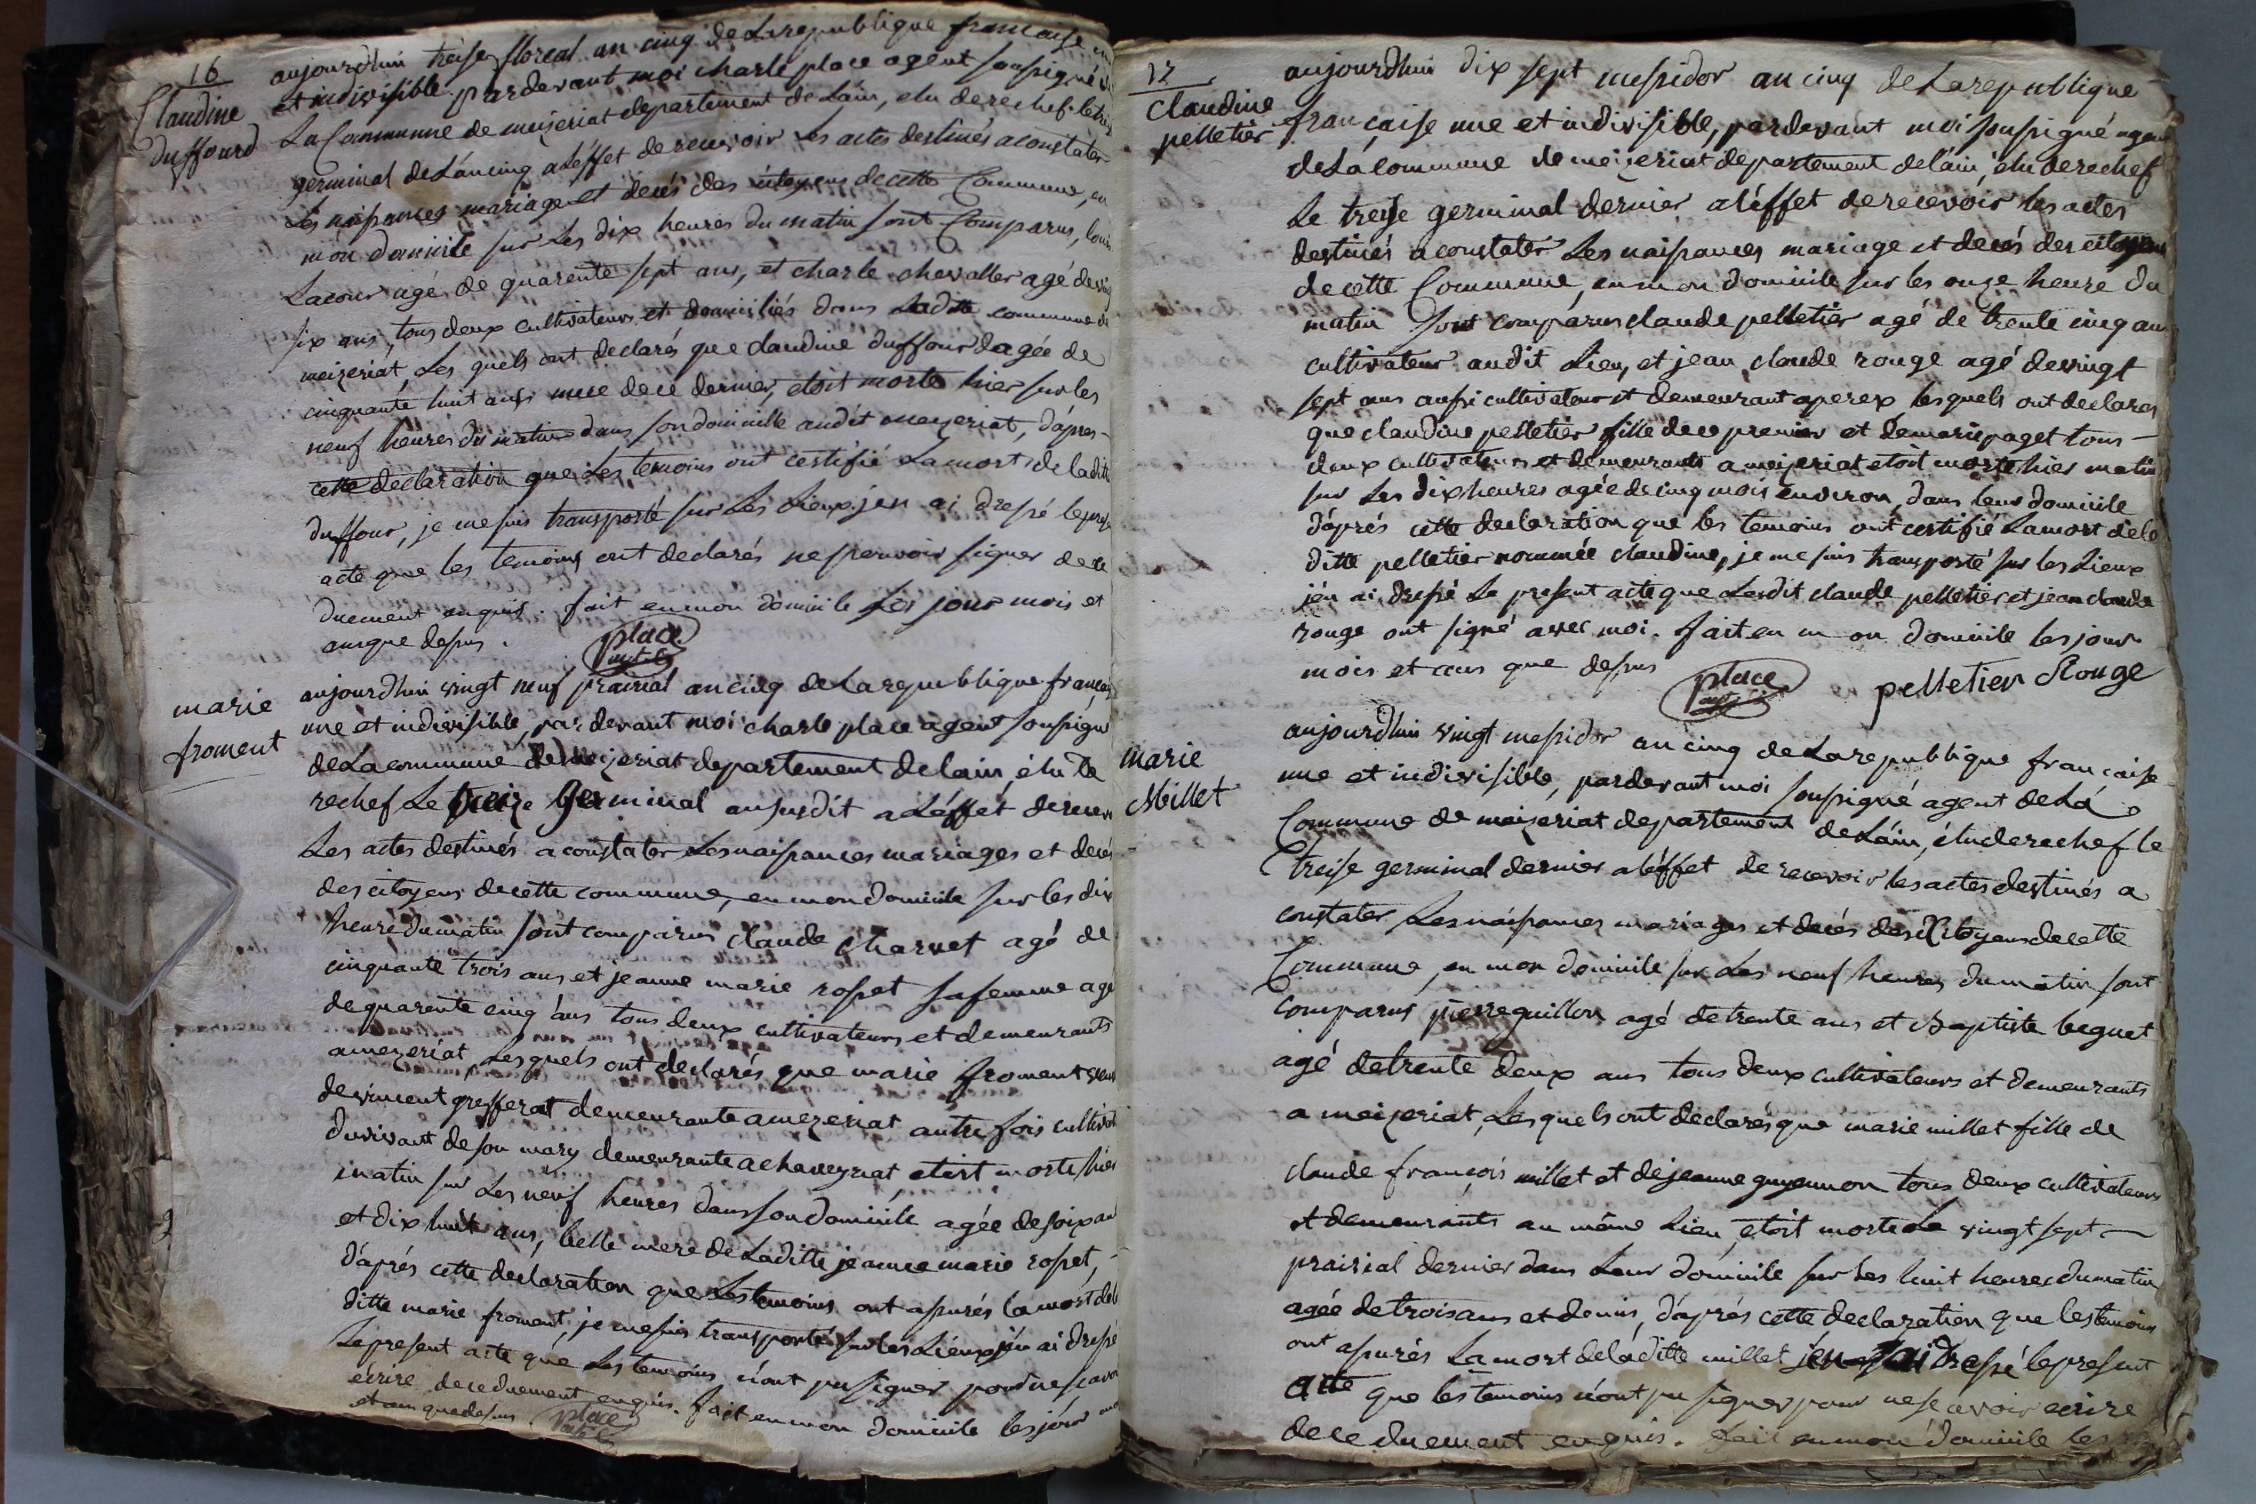 16
Claudine
Duffourd
aujourd'hui treise floreal an cinq de La republique francaise
et indivisible pardevant moi charle place agent soussigné
La Commune de meizeriat departement de Lain, elu derechef le
germinal de L'an cinq a L'éffet de recevoir Les actes destinés a constater
Les naissances mariage et decés des citoyens de cette Commune, en
mon domicile sur Les dix heures du matin sont Comparus, louis
Lacour agé de quarente sept ans, et charle chevallier agé de
six ans, tous deux cultivateurs et domiciliés dans Ladite commune de
meizeriat, Les quels ont declarés que claudine duffourd agée de
cinquante huit ans mere de ce dernier, étoit morte hier sur les
neuf heures du matin dans son domicille audit mezeriat, d'apres
cette declaration que Les temoins ont certifié La mort de ladite
duffour, je me suis transporté sur Les Lieux jen ai dressé le
acte que les temoins ont declarés ne pouvoir signer de ce
duement enquis. fait en mon domicile Les jour mois et
an que dessus.
place
marie
froment
aujourd'hui vingt neuf prairial an cinq de La republique francais
une et indivisible, par devant moi charle place agent soussigné
de La commune de meizeriat departement de lain, élu de
rechef Le treize Germinal an susdit a L'éffet de recevoir
Les actes destinés a constater Les naissances mariages et decés
des citoyens de cette commune, en mon domicile sur les dix
heure du matin sont comparus claude charvet agé de
cinquante trois ans et jeanne marie rosset sa femme agé
de quarente cinq ans tous deux cultivateurs et demeurants
a mezeriat, Lesquels ont declarés que marie froment
de vincent grefferat demeurante a mezeriat autre fois
du vivant de son mary demeurante a chaveyriat etoit morte hier
matin sur Les neuf heures dans son domicile agée de soixan
et dix huit ans, belle mere de Laditte jeanne marie rosset,
d'aprés cette declaration que Les temoins ont assurés la mort de la
ditte marie froment, je me suis transporté sur les Lieux j'en ai dressé
Le present acte que Les temoins n'ont pu signer pour ne scavoir
écrire de ce duement enquis. fait en mon domicile les jour
et an que dessus place
17
claudine
pelletier
aujourdhui dix sept messidor an cinq de La republique
francaise une et indivisible, pardevant moi soussigné agen
de La commune de meizeriat departement de lain, élu derechef
Le treise germinal dernier a l'éffet de recevoir les actes
destinés a constater Les naissances mariage et decés des citoyens
de cette Commune, en mon domicile sur les onze heure du
matin sont comparus claude pelletier agé de trente cinq ans
cultivateur audit Lieu, et jean claude rouge agé de vingt
sept ans aussi cultivateur et demeurant a perex lesquels ont declarés
que claudine pelletier fille de ce premier et de marie paget tous
deux cultivateurs et demeurants a meizeriat etoit morte hier matin
sur Les dix heures agée de cinq mois environ, dans leur domicile
d'aprés cette declaration que les temoins ont certifié La mort de la
ditte pelletier nommée claudine, je me suis transporté sur les Lieux
j'en ai dressé Le present acte que Lesdit claude pelletier et jean claude
rouge ont signé avec moi. fait en mon domicile les jour
mois et ans que dessus
place
pelletier Rouge
marie
Millet
aujourdhui vingt messidor an cinq de La republique francaise
une et indivisible, pardevant moi soussigné agent de La
Commune de meizeriat departement de Lain, élu derechef le
treise germinal dernier a l'éffet de recevoir les actes destinés a
constater Les naissances mariages et decés des Citoyens de cette
Commune, en mon domicile sur Les neuf heures du matin sont
comparus pierre guillon agé de trente ans et Baptiste beguet
agé de trente deux ans tous deux cultivateurs et demeurants
a meizeriat, Lesquels ont declarés que marie millet fille de
claude francois millet et de jeanne guyennon tous deux cultivateurs
et demeurants au même Lieu, étoit morte Le vingt sept
prairial dernier dans Leur domicile sur Les huit heures du matin
agée de trois ans et demis, d'aprés cette declaration que les temoins
ont assurés La mort de laditte millet j'en ai dressé le present
acte que les temoins n'ont pu signer pour ne scavoir ecrire
de ce duement enquis. fait en mon domicile les